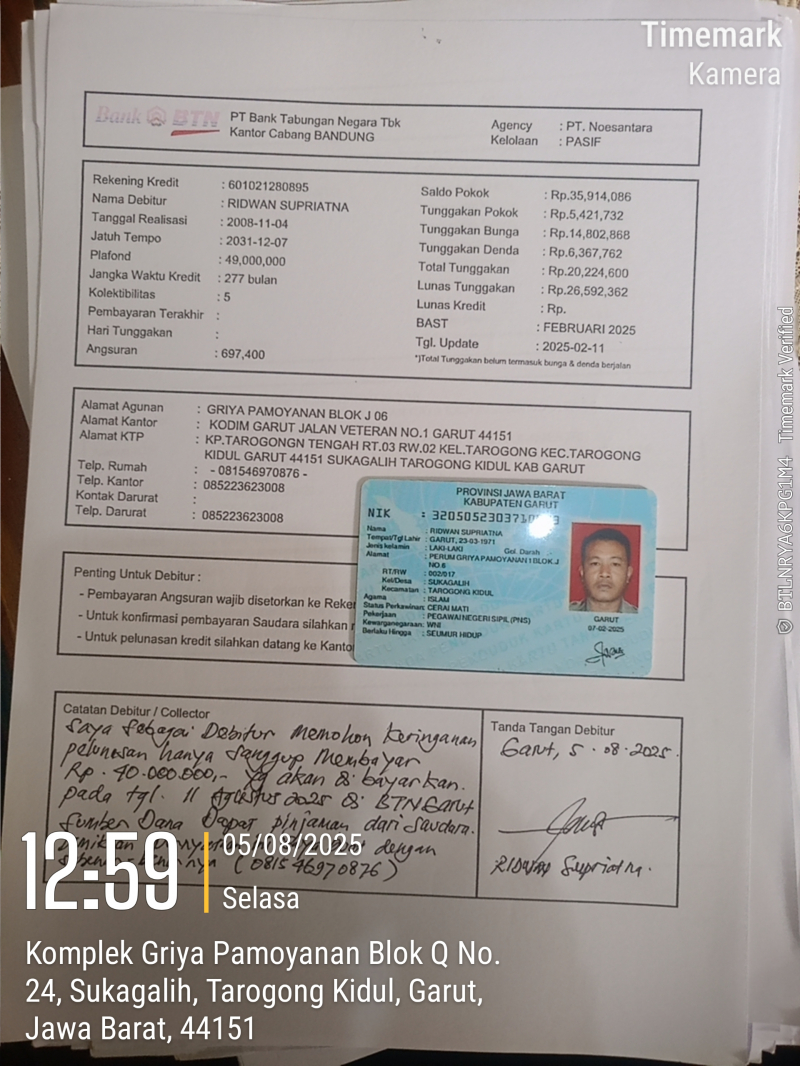 Timemark
Kamera
Bank BTN
PT Bank Tabungan Negara Tbk
Kantor Cabang BANDUNG
Agency : PT. Noesantara
Kelolaan : PASIF
Rekening Kredit : 601021280895
Nama Debitur : RIDWAN SUPRIATNA
Tanggal Realisasi : 2008-11-04
Jatuh Tempo : 2031-12-07
Plafond : 49,000,000
Jangka Waktu Kredit : 277 bulan
Kolektibilitas : 5
Pembayaran Terakhir :
Hari Tunggakan :
Angsuran : 697,400
Saldo Pokok : Rp.35,914,086
Tunggakan Pokok : Rp.5,421,732
Tunggakan Bunga : Rp.14,802,868
Tunggakan Denda : Rp.6,367,762
Total Tunggakan : Rp.20,224,600
Lunas Tunggakan : Rp.26,592,362
Lunas Kredit : Rp.
BAST : FEBRUARI 2025
Tgl. Update : 2025-02-11
*)Total Tunggakan belum termasuk bunga & denda berjalan
Alamat Agunan : GRIYA PAMOYANAN BLOK J 06
Alamat Kantor : KODIM GARUT JALAN VETERAN NO.1 GARUT 44151
Alamat KTP : KP.TAROGONGN TENGAH RT.03 RW.02 KEL.TAROGONG KEC.TAROGONG
KIDUL GARUT 44151 SUKAGALIH TAROGONG KIDUL KAB GARUT
Telp. Rumah : - 081546970876 -
Telp. Kantor : 085223623008
Kontak Darurat :
Telp. Darurat : 085223623008
PROVINSI JAWA BARAT
KABUPATEN GARUT
NIK : 320505230371
Nama : RIDWAN SUPRIATNA
Tempat/Tgl Lahir : GARUT, 23-03-1971
Jenis kelamin : LAKI-LAKI Gol. Darah
Alamat : PERUM GRIYA PAMOYANAN 1 BLOK.J
NO.6
RT/RW : 002/017
Kel/Desa : SUKAGALIH
Kecamatan : TAROGONG KIDUL
Agama : ISLAM
Status Perkawinan: CERAI MATI
Pekerjaan : PEGAWAI NEGERI SIPIL (PNS)
Kewarganegaraan: WNI
Berlaku Hingga : SEUMUR HIDUP
GARUT
07-02-2025
Penting Untuk Debitur :
- Pembayaran Angsuran wajib disetorkan ke Reke
- Untuk konfirmasi pembayaran Saudara silahkan
- Untuk pelunasan kredit silahkan datang ke Kanto
Catatan Debitur / Collector
Saya Sebagai Debitur Memohon Keringanan
pelunasan hanya Sanggup Membayar
Rp. 40.000.000,- Yg akan di bayarkan
pada tgl. 11 Agustus 2025 di BTN Garut
Sumber Dana Dapat pinjaman dari Saudara.
dengan
(081546970876)
Tanda Tangan Debitur
Garut, 5 . 08 . 2025.
RIDWAN Supriatna.
12:59
05/08/2025
Selasa
Komplek Griya Pamoyanan Blok Q No.
24, Sukagalih, Tarogong Kidul, Garut,
Jawa Barat, 44151
BTLNRYA6KPG1M4 Timemark Verified